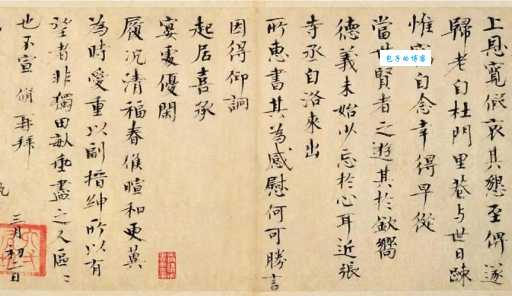 上恩寬假哀其懇至俾遂
歸老自杜門里巷與世日踈
惟竊自念幸得早從
當世賢者之遊其於欽嚮
德義未始少忘於心耳近張
寺丞自洛來出
所惠書其為感慰何可勝言
因得仰詢
起居喜承
宴處優閑
履況清福春候暄和更冀
為時愛重以副搢紳所以有
望者非獨田畝垂盡之人區〻
也不宣脩再拜
三月初二日
包子的博客